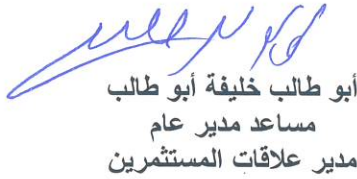 أبو طالب خليفة أبو طالب
مساعد مدير عام
مدير علاقات المستثمرين